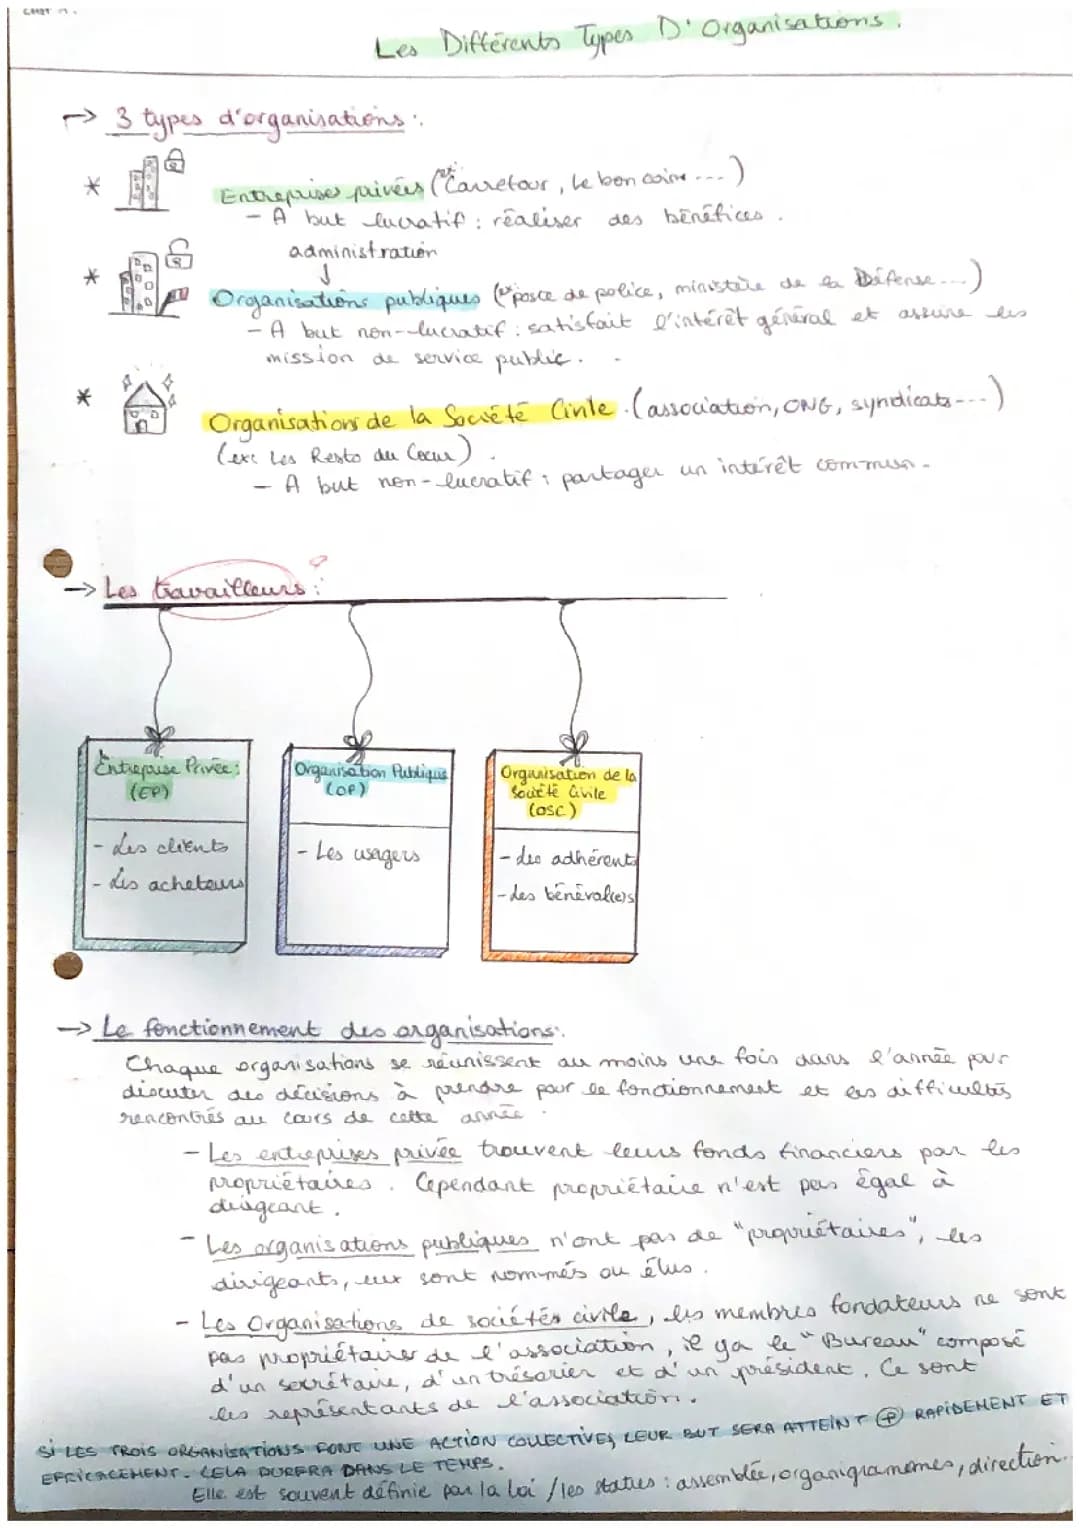 Les Différents Types D'Organisations.
→ 3 types d'organisations :
* Entreprises privées (ex Carrefour, Le bon coin ...)
- A but lucratif : réaliser des bénéfices.
administration
↓
* Organisations publiques (ex posce de police, ministère de la Défense ...)
- A but non-lucratif : satisfait l'intérêt général et assure les
mission de service public.
* Organisations de la Société Civile. (association, ONG, syndicats ...)
(ex: Les Resto du Cœur).
- A but non-lucratif : partager un intérêt commun.
→ Les travailleurs :
Entreprise Privée :
(EP)
- Les clients
- Les acheteurs
Organisation Publique
(OP)
- Les usagers
Organisation de la
Société Civile
(OSC)
- Les adhérents
- Les bénéval(e)s
→ Le fonctionnement des organisations :
Chaque organisations se réunissent au moins une fois dans l'année pour
discuter des décisions à prendre pour le fonctionnement et les difficultés
rencontrés au cours de cette année.
- Les entreprises privée trouvent leurs fonds financiers par les
propriétaires. Cependant propriétaire n'est pas égal à
dirigeant.
- Les organisations publiques n'ont pas de "propriétaires", les
dirigeants, eux sont nommés ou élus.
- Les Organisations de sociétés civile, les membres fondateurs ne sont
pas propriétaires de l'association, il ya le "Bureau" composé
d'un secrétaire, d'un trésorier et d'un président. Ce sont
les représentants de l'association.
SI LES TROIS ORGANISATIONS FONT UNE ACTION COLLECTIVES, LEUR BUT SERA ATTEINT ⊕ RAPIDEMENT ET
EFFICACEMENT. CELA DURERA DANS LE TEMPS.
Elle est souvent définie par la loi / les status : assemblée, organigrammes, direction.